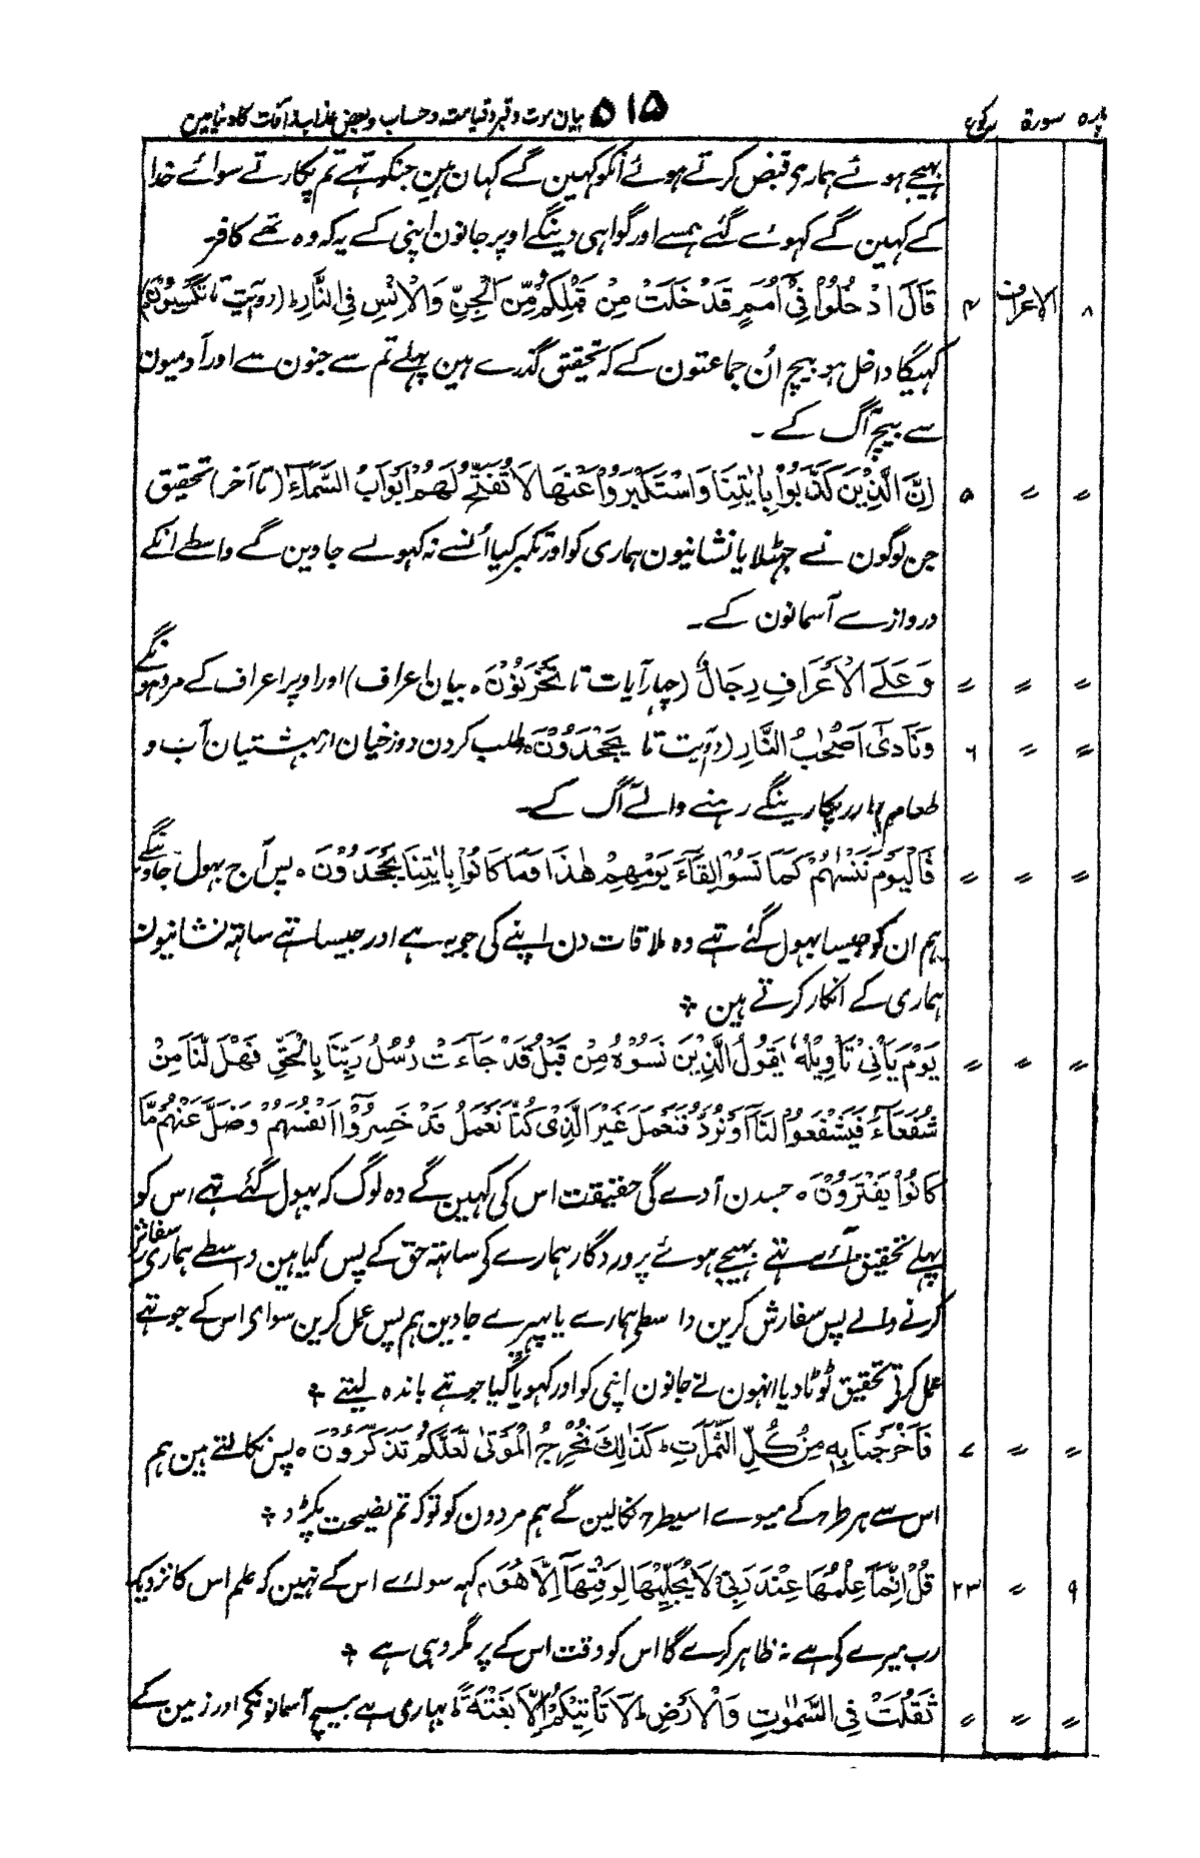 پارہ سورۃ رکوع ۵۱۵ بیان موت و قبر و قیامت و حساب و بعض عذاب و آفات کا دنیا مین
بہیجے ہوئے ہماری قبض کرتے ہوئے انکو کہین گے کہان ہین جنکو تہے تم پکارتے سوائے خدا
کے کہین گے کہوئے گئے ہمسے اور گواہی دینگے اوپر جانون اپنی کے یہ کہ وہ تھے کافر۔
۸ الاعراف ۴ قَالَ ادْخُلُوْا فِیْٓ اُمَمٍ قَدْ خَلَتْ مِنْ قَبْلِكُمْ مِّنَ الْجِنِّ وَالْاِنْسِ فِی النَّارِ ط (دو آیت تا تَكْسِبُوْنَ)
کہیگا داخل ہو بیچ اُن جماعتون کے کہ تحقیق گذرے ہین پہلے تم سے جنون سے اور آدمیون
سے بیچ آگ کے ۔
〃 〃 ۵ اِنَّ الَّذِیْنَ كَذَّبُوْا بِاٰیٰتِنَا وَاسْتَكْبَرُوْا عَنْهَا لَا تُفَتَّحُ لَهُمْ اَبْوَابُ السَّمَآءِ (تا آخر) تحقیق
جن لوگون نے جہٹلایا نشانیون ہماری کو اور تکبر کیا اُنسے نہ کہولے جاوین گے واسطے انکے
دروازے آسمانون کے۔
〃 〃 〃 وَعَلَے الْاَعْرَافِ رِجَالٌ (چہار آیات تا تَحْزَنُوْنَ ۰ بیان اعراف) اور اوپر اعراف کے مرد ہونگے
〃 〃 ۶ وَنَادٰۤی اَصْحٰبُ النَّارِ (دو آیت تا یَجْحَدُوْنَ ۰ طلب کردن دوزخیان از بہشتیان آب و
طعام) اور پکارینگے رہنے والے آگ کے۔
〃 〃 〃 فَالْیَوْمَ نَنْسٰهُمْ كَمَا نَسُوْا لِقَآءَ یَوْمِهِمْ هٰذَا وَمَا كَانُوْا بِاٰیٰتِنَا یَجْحَدُوْنَ ۰ پس آج بہول جاوینگے
ہم ان کو جیسا بہول گئے تہے وہ ملاقات دن اپنے کی جو یہ ہے اور جیسا تہے ساتہہ نشانیون
ہماری کے انکار کرتے ہین ؞
〃 〃 〃 یَوْمَ یَاْتِیْ تَاْوِیْلُهٗ یَقُوْلُ الَّذِیْنَ نَسُوْهُ مِنْ قَبْلُ قَدْ جَآءَتْ رُسُلُ رَبِّنَا بِالْحَقِّ فَهَلْ لَّنَا مِنْ
شُفَعَآءَ فَیَشْفَعُوْا لَنَآ اَوْ نُرَدُّ فَنَعْمَلَ غَیْرَ الَّذِیْ كُنَّا نَعْمَلُ قَدْ خَسِرُوْٓا اَنْفُسَهُمْ وَضَلَّ عَنْهُمْ مَّا
كَانُوْا یَفْتَرُوْنَ ۰ جسدن آدے گی حقیقت اس کی کہین گے وہ لوگ کہ بہول گئے تہے اس کو
پہلے تحقیق آئے تہے بہیجے ہوئے پروردگار ہمارے کی ساتہہ حق کے پس کیا ہین واسطے ہماری سفارش
کرنے والے پس سفارش کرین واسطے ہمارے یا پہیرے جاوین ہم پس عمل کرین سوای اس کے جو تہے
عمل کرتے تحقیق ٹوٹا دیا انہون نے جانون اپنی کو اور کہویا گیا جو تہے باندہ لیتے ؞
〃 〃 ۷ فَاَخْرَجْنَا بِهٖ مِنْ كُلِّ الثَّمَرٰتِ ط كَذٰلِكَ نُخْرِجُ الْمَوْتٰی لَعَلَّكُمْ تَذَكَّرُوْنَ ۰ پس نکالتے ہین ہم
اس سے ہر طرح کے میوے اسیطرح نکالین گے ہم مردون کو توکہ تم نصیحت پکڑو ؞
۹ 〃 ۲۳ قُلْ اِنَّمَا عِلْمُهَا عِنْدَ رَبِّیْ لَا یُجَلِّیْهَا لِوَقْتِهَآ اِلَّا هُوَ، کہہ سوائے اس کے نہین کہ علم اس کا نزدیک
رب میرے کی ہے نہ ظاہر کرے گا اس کو وقت اس کے پر مگر وہی ہے ؞
〃 〃 〃 ثَقُلَتْ فِی السَّمٰوٰتِ وَالْاَرْضِ ط لَا تَاْتِیْكُمْ اِلَّا بَغْتَةً ط بہاری ہے بیچ آسمانونکے اور زمین کے